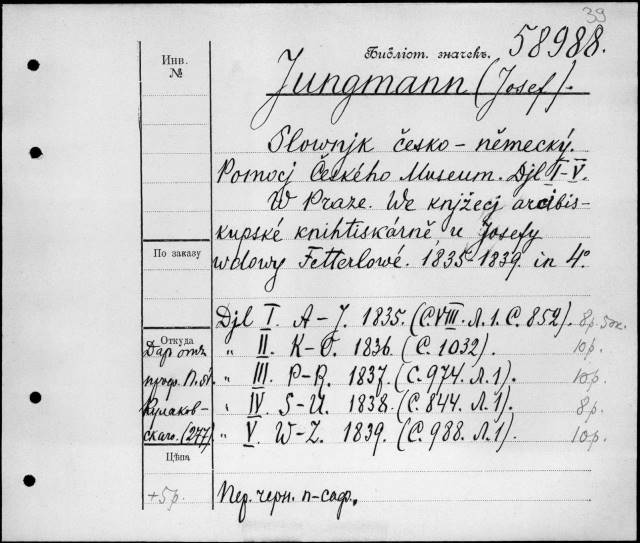 39
Инв.
№
Библіот. значекъ.
58988.
Jungmann (Josef).
Slownjk česko-německý.
Pomocj Českého Museum. Djl I-V.
W Praze. We knjžecj arcibis-
kupské knihtiskárně, u Josefy
wdowy Fetterlowé. 1835-1839. in 4°.
По заказу
Djl I. A-J. 1835. (С. VIII. Л. 1. С. 852). 8р. 50к.
„ II. K-O. 1836. (С. 1032). 10р.
„ III. P-R. 1837. (С. 974. Л. 1). 10р.
„ IV. S-U. 1838. (С. 844. Л. 1). 8р.
„ V. W-Z. 1839. (С. 988. Л. 1). 10р.
Откуда
Даръ отъ
проф. П.
Кулаков-
скаго. (277)
Цѣна
+5р.
Пер. черн. п-саф.